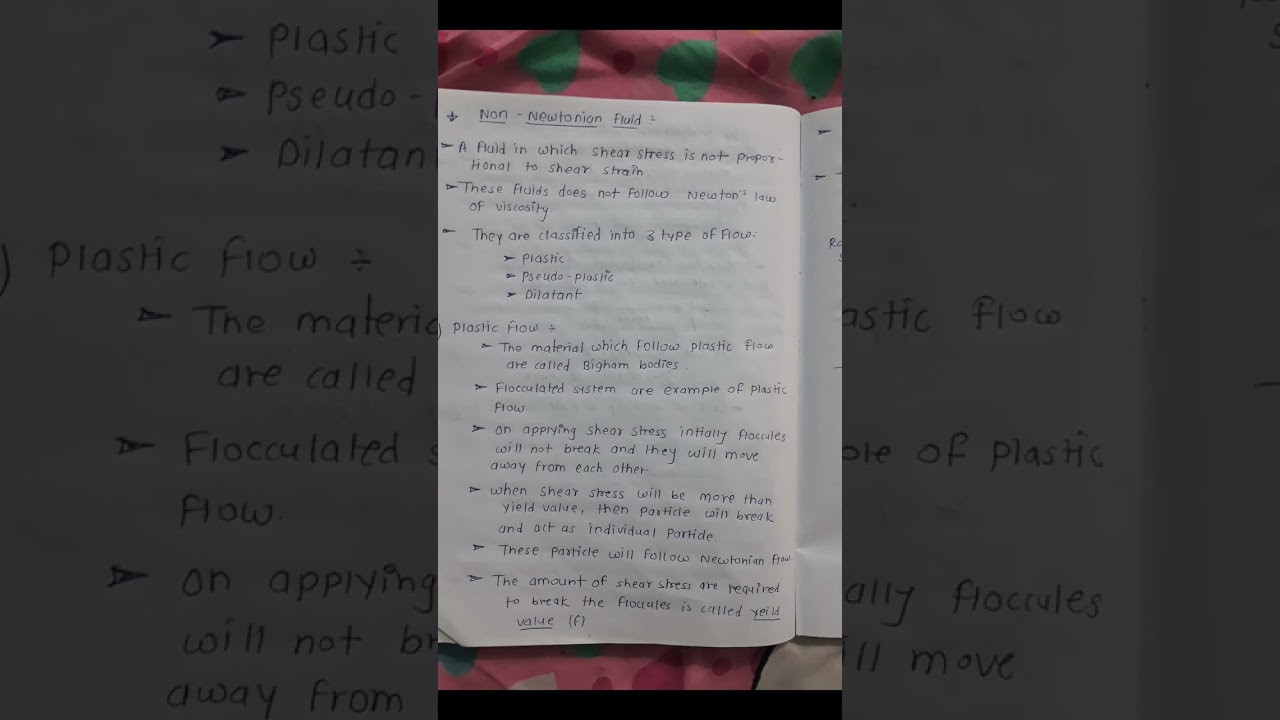 Non - Newtonian Fluid ÷
➤ A fluid in which shear stress is not propor-
tional to shear strain.
➤ These fluids does not follow Newton's law
of viscosity.
They are classified into 3 type of flow:
➤ Plastic
➤ Pseudo-plastic
➤ Dilatant
) Plastic flow ÷
➤ The material which follow plastic flow
are called Bigham bodies.
➤ Flocculated system are example of plastic
flow.
➤ on applying shear stress intially floccules
will not break and they will move
away from each other.
➤ when shear stress will be more than
yield value, then particle will break
and act as individual particle.
➤ These particle will follow Newtonian flow
➤ The amount of shear stress are required
to break the floccules is called yeild
value (f)